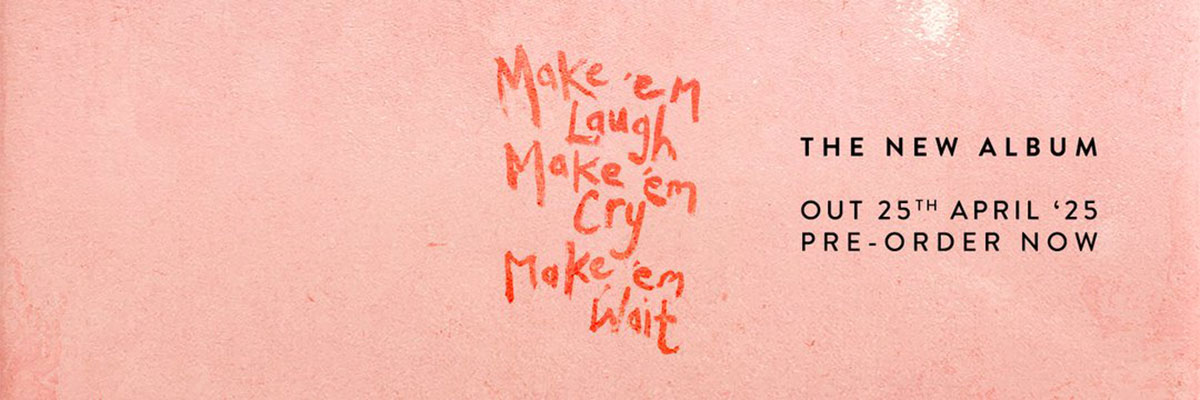 Make 'em
Laugh
Make 'em
Cry
Make 'em
Wait
THE NEW ALBUM
OUT 25TH APRIL ‘25
PRE-ORDER NOW